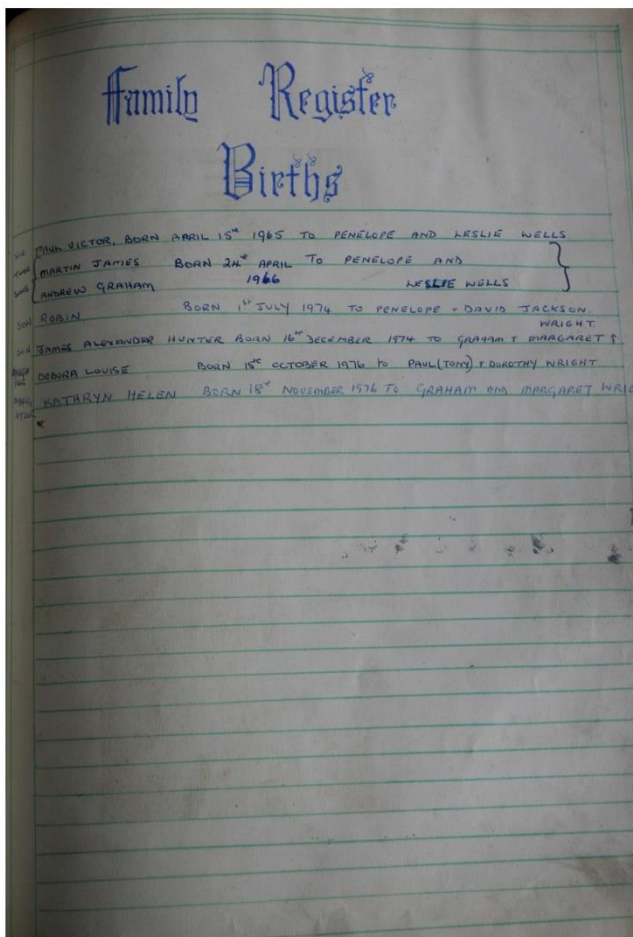 Family Register
Births
SON PAUL VICTOR, BORN APRIL 15th 1965 TO PENELOPE AND LESLIE WELLS
TWIN MARTIN JAMES BORN 24th APRIL TO PENELOPE AND
SONS ANDREW GRAHAM 1966 LESLIE WELLS
SON ROBIN BORN 1st JULY 1974 TO PENELOPE + DAVID JACKSON.
WRIGHT
SON JAMES ALEXANDER HUNTER BORN 16th DECEMBER 1974 TO GRAHAM + MARGARET ↑
DEBORA LOUISE BORN 15th OCTOBER 1976 to PAUL (TONY) + DOROTHY WRIGHT
KATHRYN HELEN BORN 18th NOVEMBER 1976 TO GRAHAM AND MARGARET WRIG